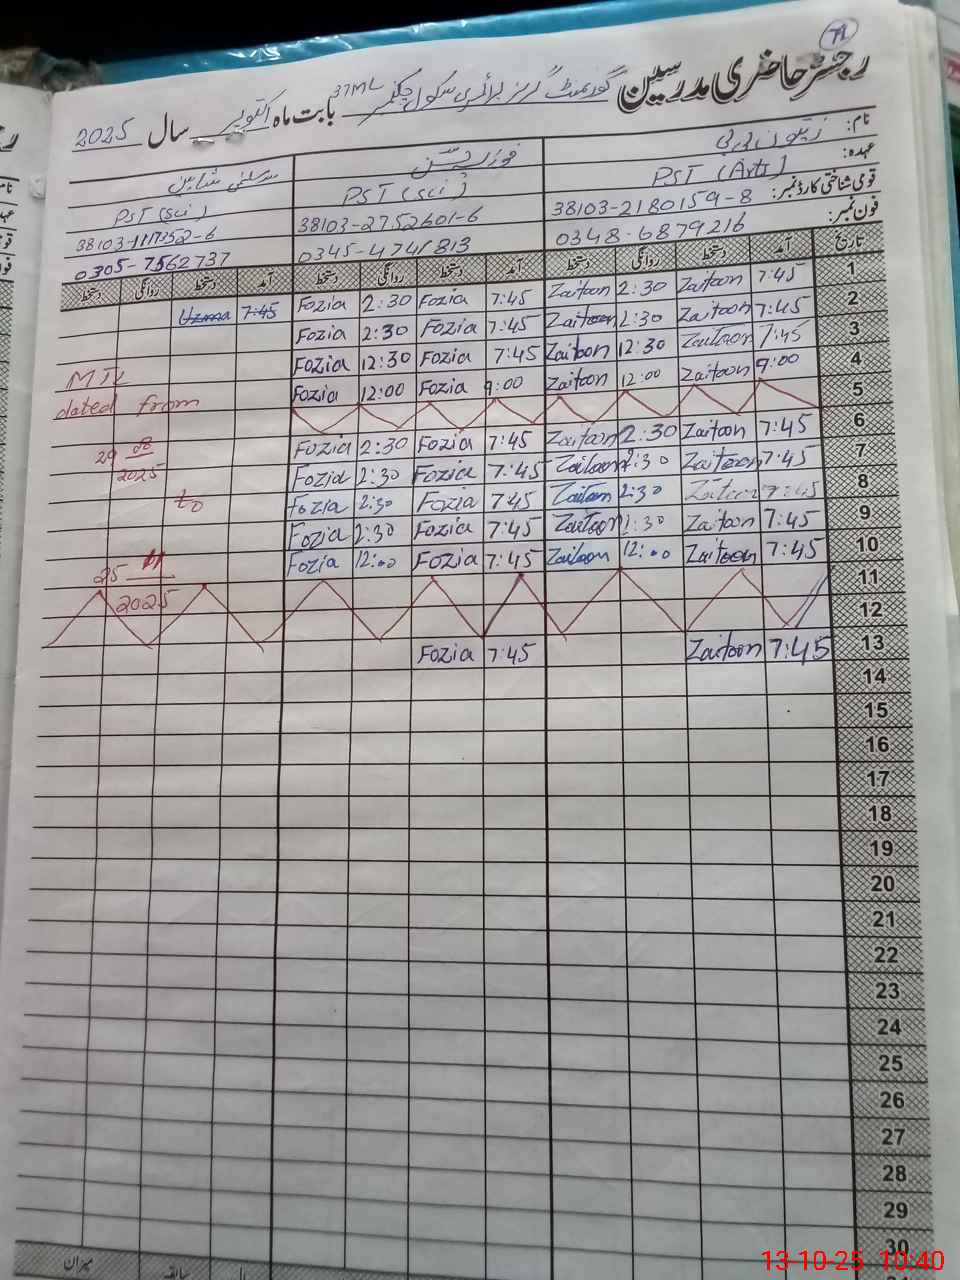 71
رجسٹر حاضری مدرسین گورنمنٹ گرلز پرائمری سکول چک نمبر 37ML بابت ماہ اکتوبر سال 2025
نام: زیتون بی بی فوزیہ شاہین
عہدہ: PST (Arts) PST (Sci) PST (Sci)
قومی شناختی کارڈ نمبر: 38103-2180159-8 38103-2752601-6
فون نمبر: 0348-6879216 0345-4741813 0305-7562737
تاریخ آمد دستخط روانگی دستخط آمد دستخط روانگی دستخط آمد دستخط روانگی دستخط
1 7:45 Zaitoon 2:30 Zaitoon 7:45 Fozia 2:30 Fozia 7:45 Uzma
2 7:45 Zaitoon 2:30 Zaitoon 7:45 Fozia 2:30 Fozia
3 7:45 Zaitoon 12:30 Zaitoon 7:45 Fozia 12:30 Fozia
4 9:00 Zaitoon 12:00 Zaitoon 9:00 Fozia 12:00 Fozia
5
6 7:45 Zaitoon 2:30 Zaitoon 7:45 Fozia 2:30 Fozia
7 7:45 Zaitoon 2:30 Zaitoon 7:45 Fozia 2:30 Fozia
8 7:45 Zaitoon 2:30 Zaitoon 7:45 Fozia 2:30 Fozia
9 7:45 Zaitoon 1:30 Zaitoon 7:45 Fozia 2:30 Fozia
10 7:45 Zaitoon 12:00 Zaitoon 7:45 Fozia 12:00 Fozia
11
12
13 7:45 Zaitoon 7:45 Fozia
14
15
16
17
18
19
20
21
22
23
24
25
26
27
28
29
30
dated from
29 08
2025
to
25 11
2025
میزان سابقہ
13-10-25 10:40